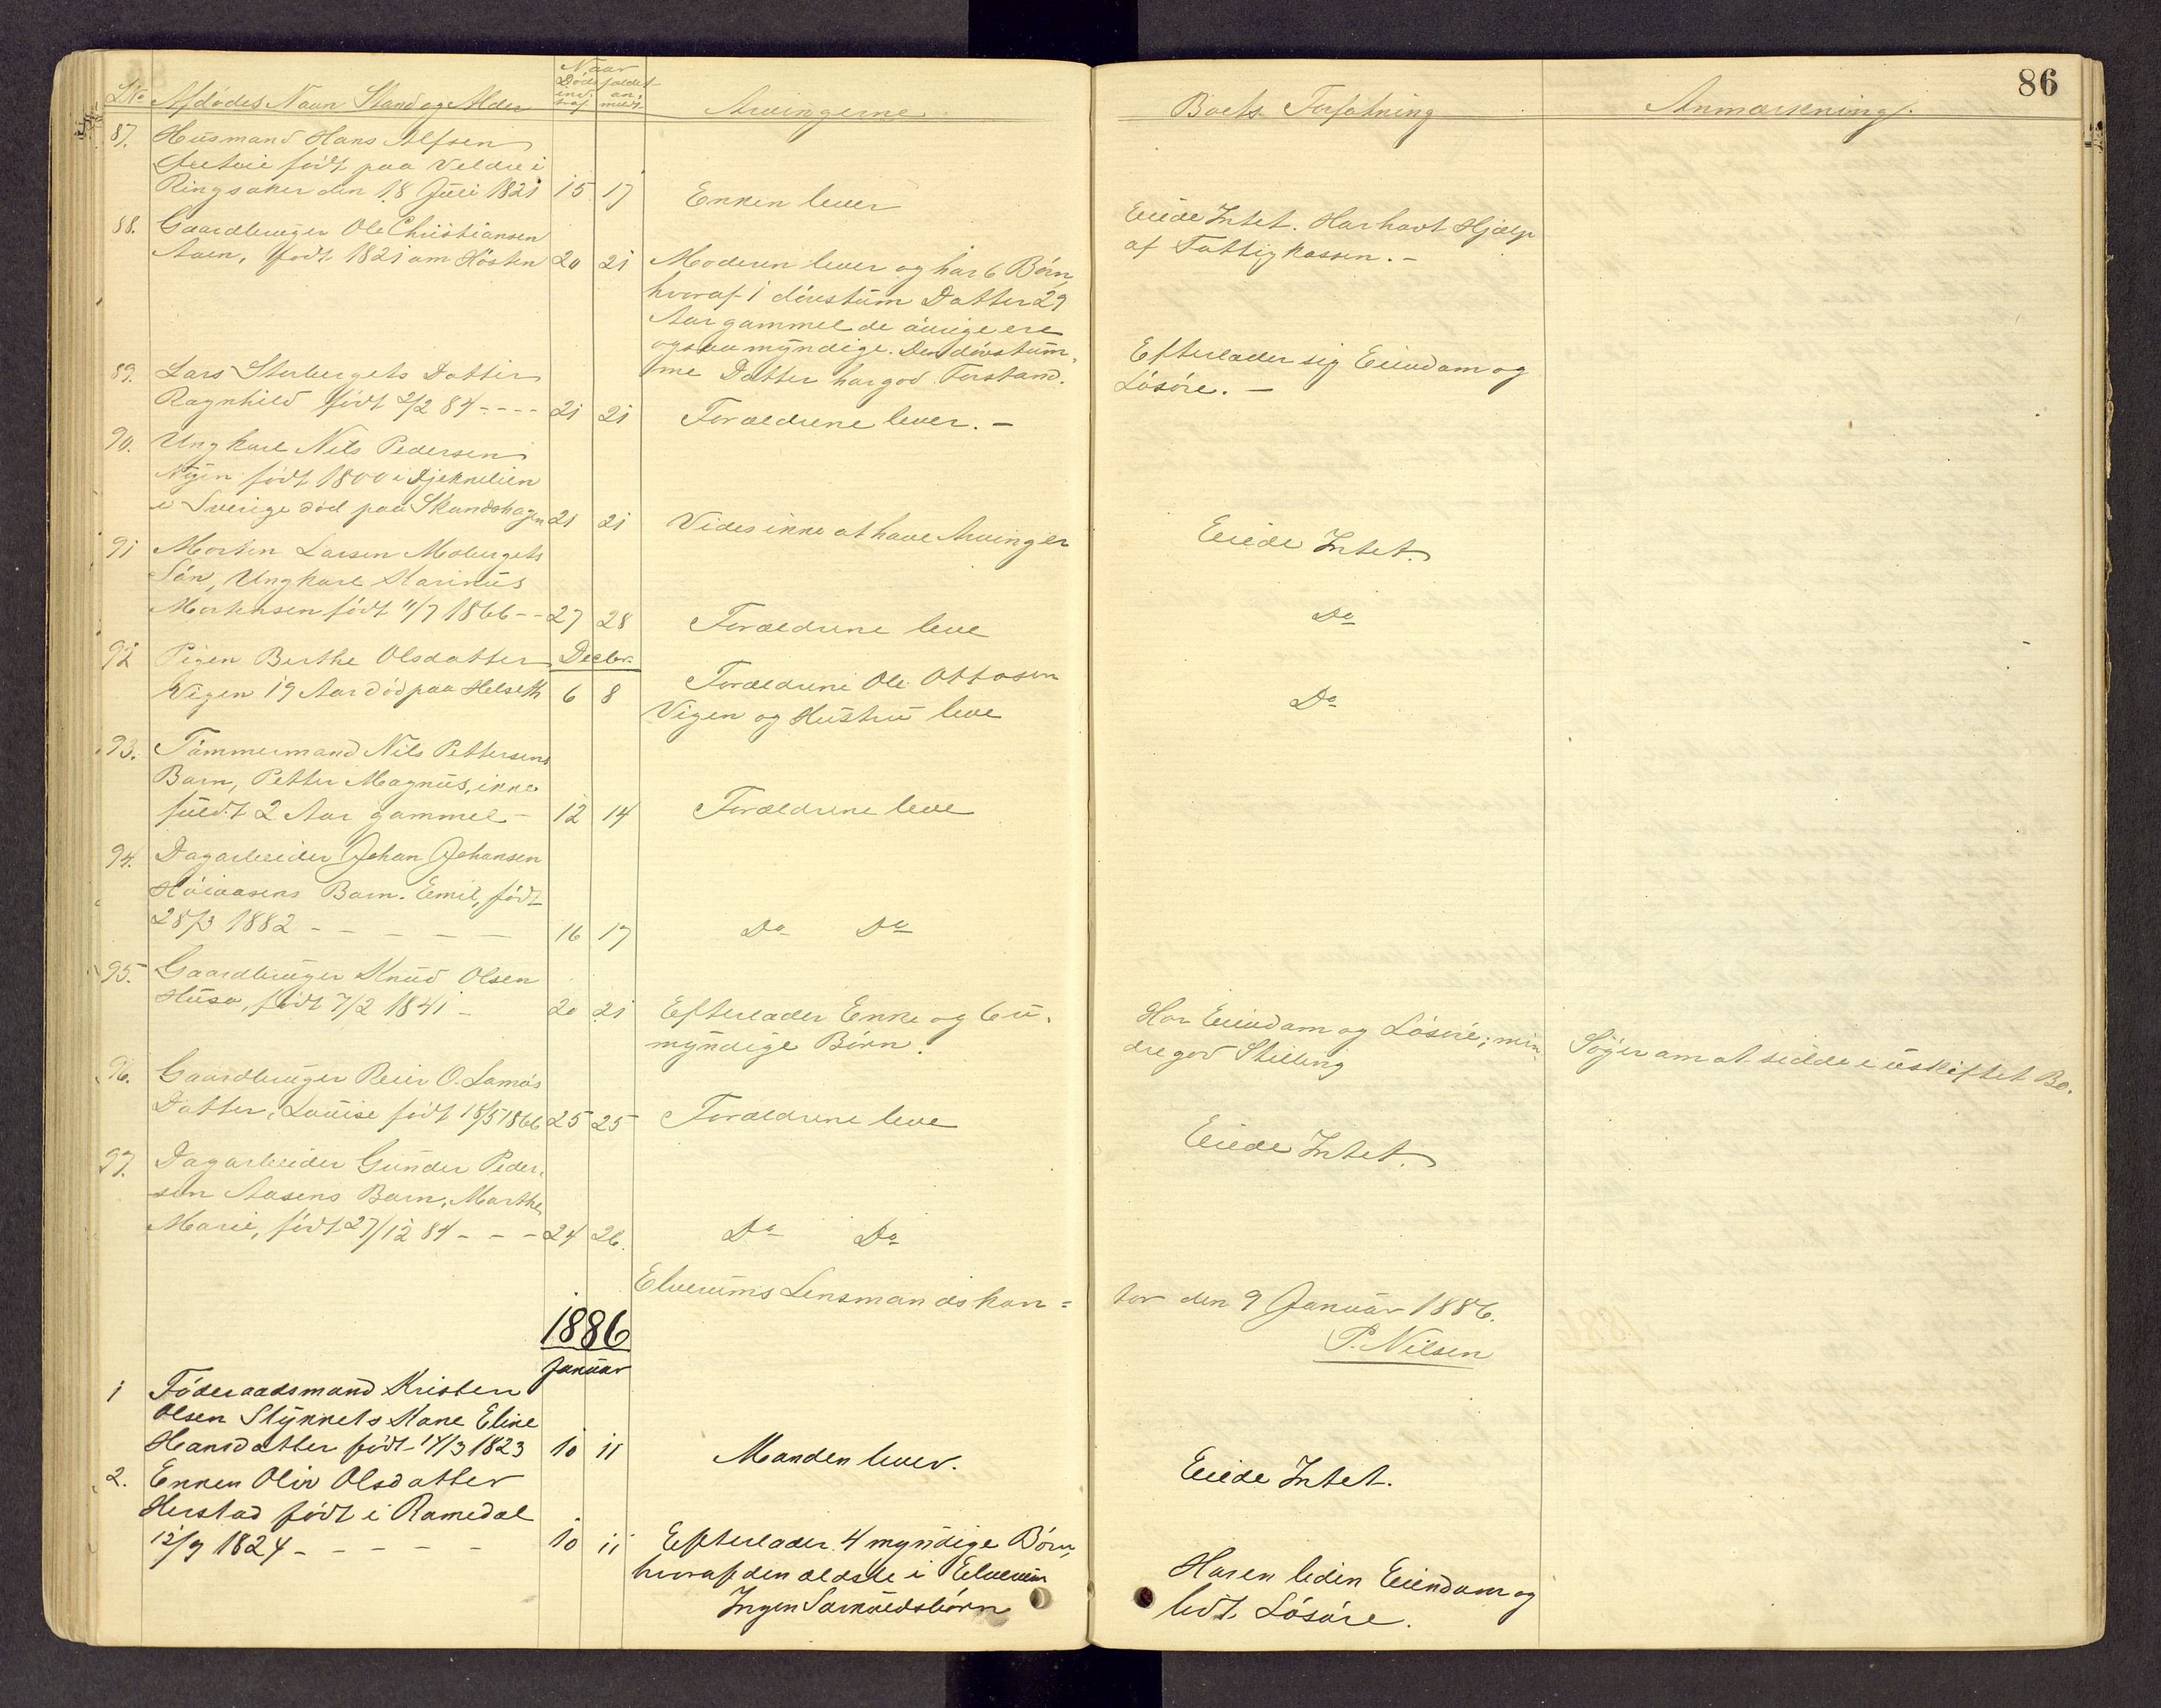 86
LNo Afdödes Navn Stand og Alder
Naar
Dödsfaldet
indtraf
anmeldt
Arvingerne
Boets Forfatning
Anmærkning.
87. Husmand Hans Alfsen
født paa Veldre i
Ringsaker den 18 Juli 1821 15 17 Enken lever
Eiede Intet. Har havt Hjælp
af Fattigkassen. -
88. Gaardbruger Ole Christiansen
Aaen, født 1821 om Hösten 20 21 Moderen lever og har 6 Børn,
hvoraf 1 døvstum Datter 29
Aar gammel de øvrige ere
ogsaa myndige. Den døvstum-
me Datter har god Forstand.
Efterlader sig Eiendom og
Løsøre. -
89. Lars Sterbergets Datter
Ragnhild født 2/2 84 - - - - 21 21 Forældrene lever. -
90. Ungkarl Nils Pedersen
født 1800 i Djeknelien
i Sverige död paa Skundshagen 21 21 Vides ikke at have Arvinger
Eiede Intet.
91 Morten Larsen Mobergets
Søn, Ungkarl Karinus
Mortensen født 11/7 1866 - - 27 28 Forældrene leve
Do
92 Pigen Berthe Olsdatter Decbr.
Vigen 19 Aar død paa Helseth 6 8 Forældrene Ole Ottosen
Vigen og Hustru leve
Do
93. Tømmermand Nils Pettersens
Barn, Petter Magnus, ikke
fuldt 2 Aar gammel - 12 14 Forældrene leve
94. Dagarbeider Johan Johansen
Høiaasens Barn. Emil, født
28/3 1882 - - - - - 16 17 Do Do
95. Gaardbruger Knud Olsen
Huse, født 7/2 1841 - 20 21 Efterlader Enke og 6 u-
myndige Børn.
Har Eiendom og Løsøre; min-
dre god Stilling
Søger om at sidde i uskiftet Bo.
96. Gaardbruger Peier O. Lamøs
Datter, Louise født 18/5 1866 25 25 Forældrene leve
Eiede Intet.
97. Dagarbeider Gunder Peder-
sen Aasens Barn, Marthe
Marie, født 27/12 84 - - - 24 26. Do Do
Elverums Lensmandskon=
tor den 9 Januar 1886.
P. Nilsen
1886
Januar
1 Föderaadsmand Kristen
Olsen Stykkets Kone Eline
Hansdatter født 14/3 1823 10 11 Manden lever.
Eiede Intet.
2. Enken Oliv Olsdatter
Herstad født i Romedal
12/9 1824 - - - - - 10 11 Efterlader 4 myndige Børn,
hvoraf den ældste i Elverum
Ingen Særkuldsbørn
Har en liden Eiendom og
lidt Løsøre.